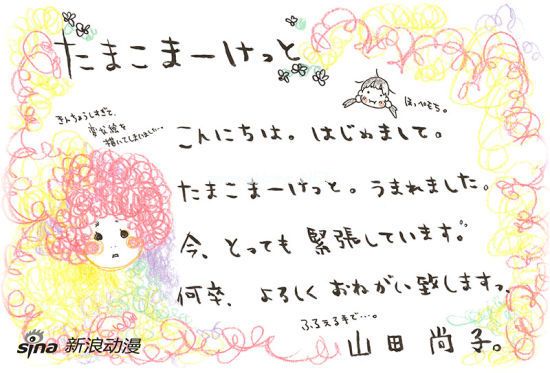 たまこまーけっと
ほっぺもち。
きんちょうしすぎて、
変な絵を
描いてしまいました…
こんにちは。はじめまして。
たまこまーけっと。うまれました。
今、とっても緊張しています。
何卒、よろしくおねがい致しますっ、
ふるえる手で…。
山田尚子。
sina 新浪动漫